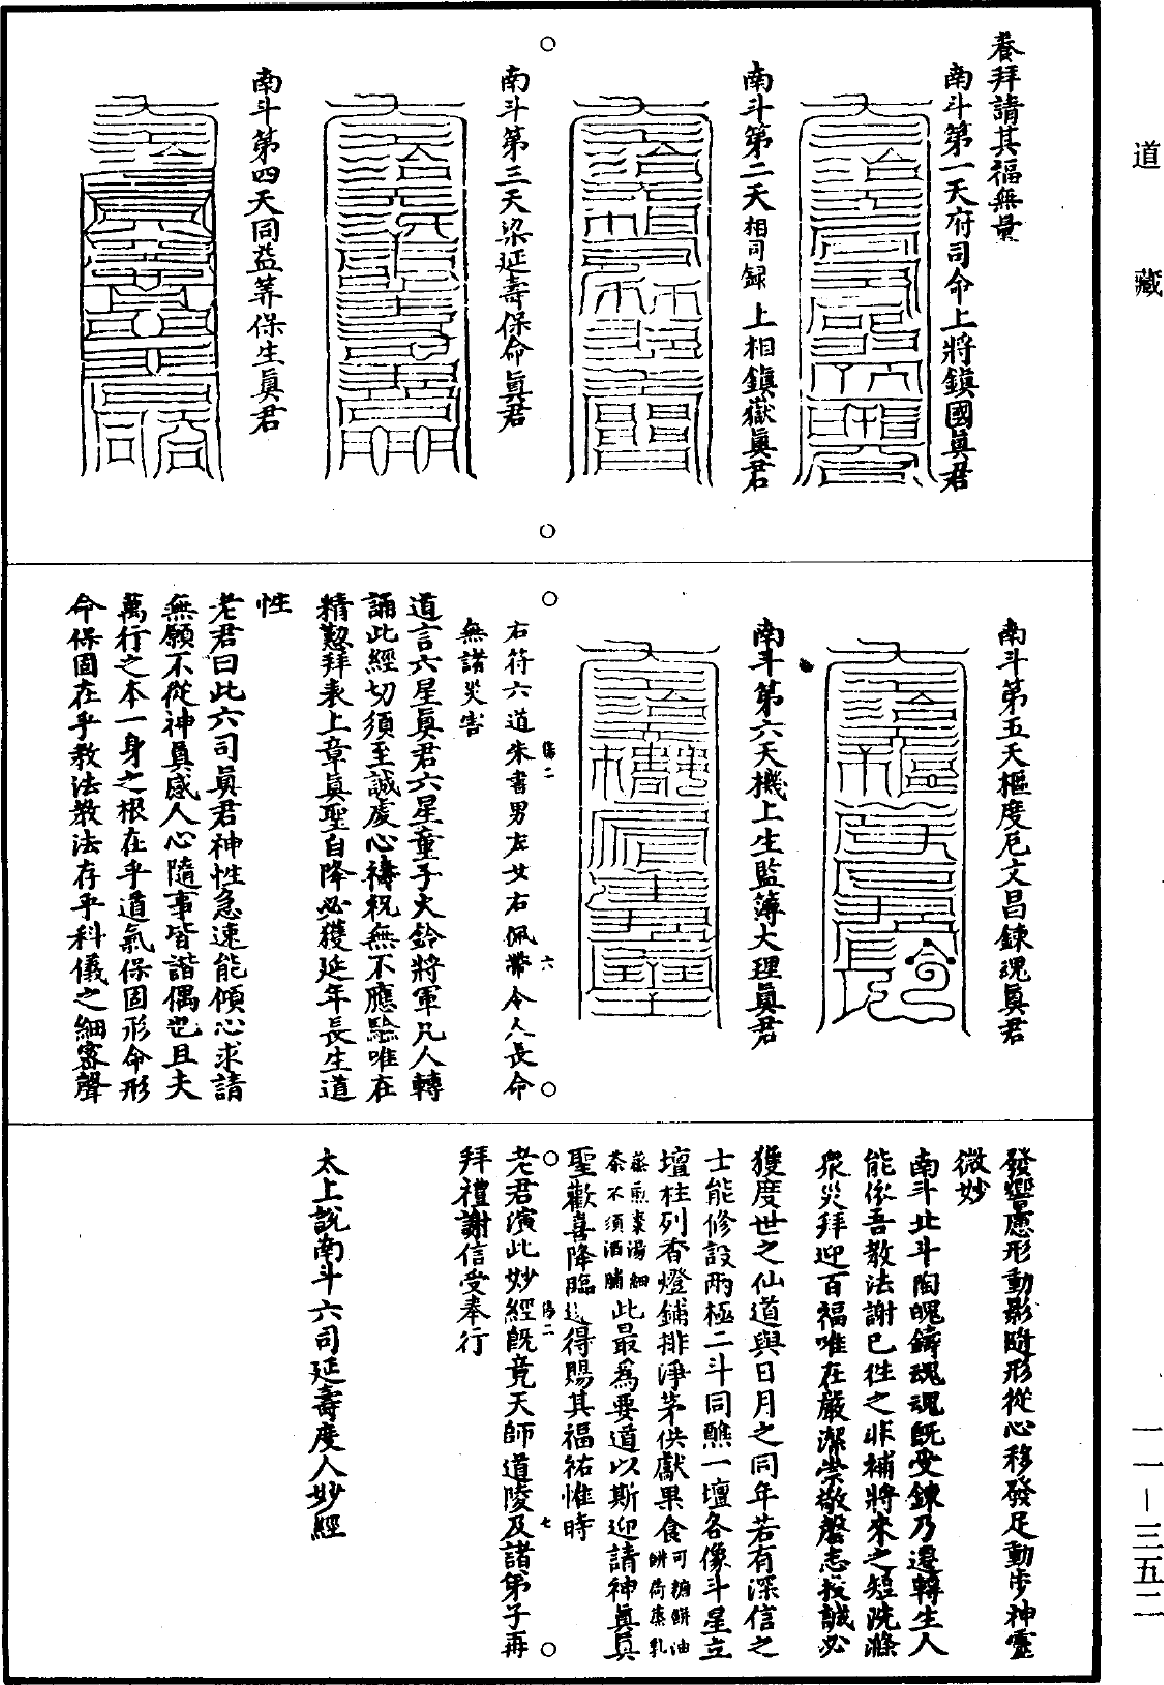 道　藏
養拜請其福無量
南斗第一天府司命上將鎮國眞君
南斗第二天相司録上相鎮嶽眞君
南斗第三天梁延壽保命眞君
南斗第四天同益筭保生眞君
南斗第五天樞度厄文昌錬魂眞君
南斗第六天機上生監簿大理眞君
右符六道朱書男左女右佩帶令人長命
無諸災害
傷二
六
道言六星眞君六星童子火鈴將軍凡人轉
誦此經切須至誠虔心禱祝無不應驗唯在
精懃拜表上章眞聖自降必獲延年長生道
性
老君曰此六司眞君神性急速能傾心求請
無願不從神眞感人心隨事皆諧偶也且夫
萬行之本一身之根在乎道氣保固形命形
命保固在乎教法教法存乎科儀之細密聲
發響應形動影隨形從心移發足動步神靈
微妙
南斗北斗陶魄鑄魂魂旣受錬乃遷轉生人
能依吾教法謝已徃之非補將來之短洗滌
衆災拜迎百福唯在嚴潔崇敬罄志投誠必
獲度世之仙道與日月之同年若有深信之
士能修設兩極二斗同醮一壇各像斗星立
壇柱列香燈鋪排淨茅供獻果食可糖餅油餅齋蒸乳
蒸煎棗湯細茶不須酒脯此最爲要道以斯迎請神眞眞
聖歡喜降臨迄得賜其福祐惟時
傷二
七
老君演此妙經旣竟天師道陵及諸弟子再
拜禮謝信受奉行
太上說南斗六司延壽度人妙經
一一－三五二